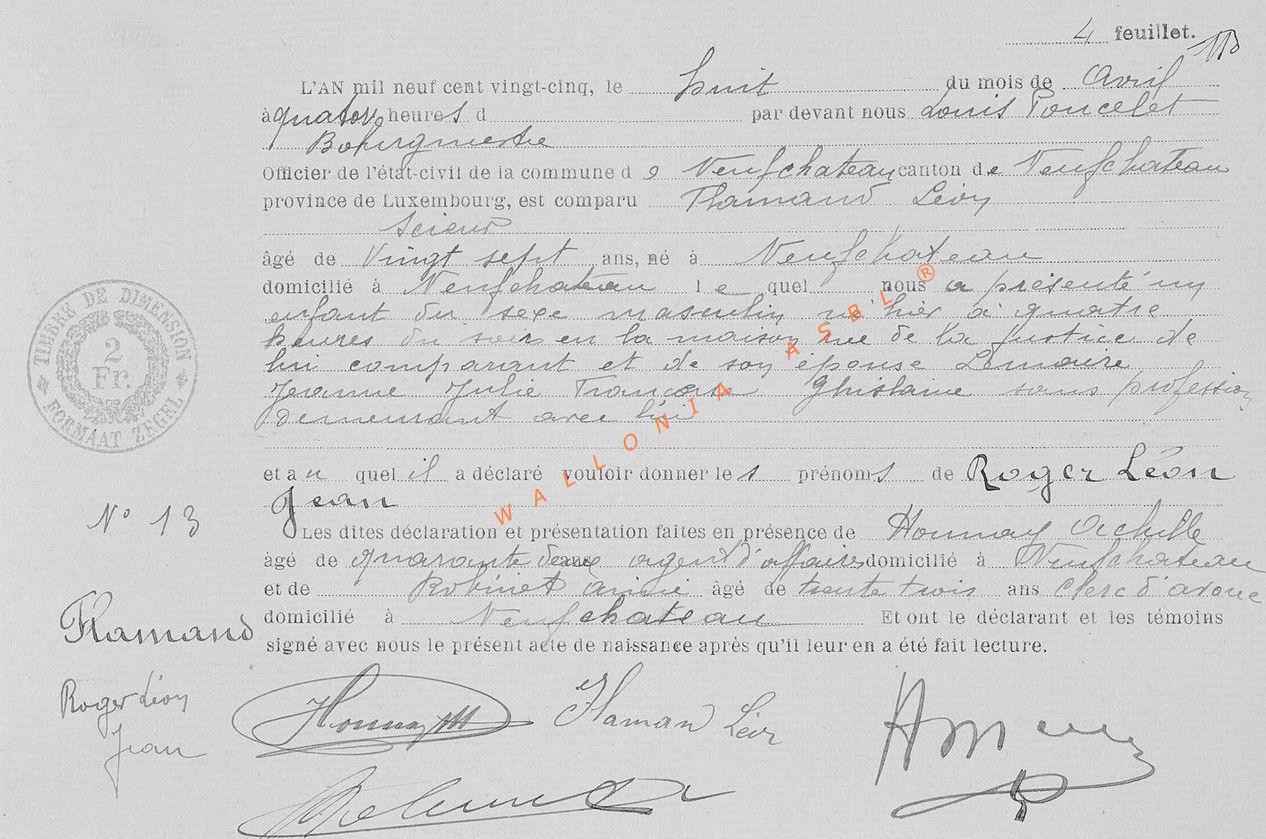 4 feuillet.
L'AN mil neuf cent vingt-cinq, le huit du mois de Avril
à quatorze heures d par devant nous Louis Poncelet
Bourgmestre
Officier de l'état-civil de la commune de Neufchateau canton de Neufchateau
province de Luxembourg, est comparu Flamand Léon
scieur
âgé de Vingt sept ans, né à Neufchateau
domicilié à Neufchateau le quel nous a présenté un
enfant du sexe masculin né hier à quatre
heures du soir en la maison rue de la Justice de
lui comparant et de son épouse Lemaire
Jeanne Julie Françoise Ghislaine sans profession
demeurant avec lui
et au quel il a déclaré vouloir donner les prénoms de Roger Léon
Jean
Les dites déclaration et présentation faites en présence de Honnay Achille
âgé de quarante deux agent d'affaires domicilié à Neufchateau
et de Robinet âgé de trente trois ans clerc d'avoué
domicilié à Neufchateau Et ont le déclarant et les témoins
signé avec nous le présent acte de naissance après qu'il leur en a été fait lecture.
N° 13
Flamand
Roger Léon
Jean
Honnay
Flamand Léon
TIMBRE DE DIMENSION
2
Fr.
FORMAAT ZEGEL
WALLONIA ASBL ®